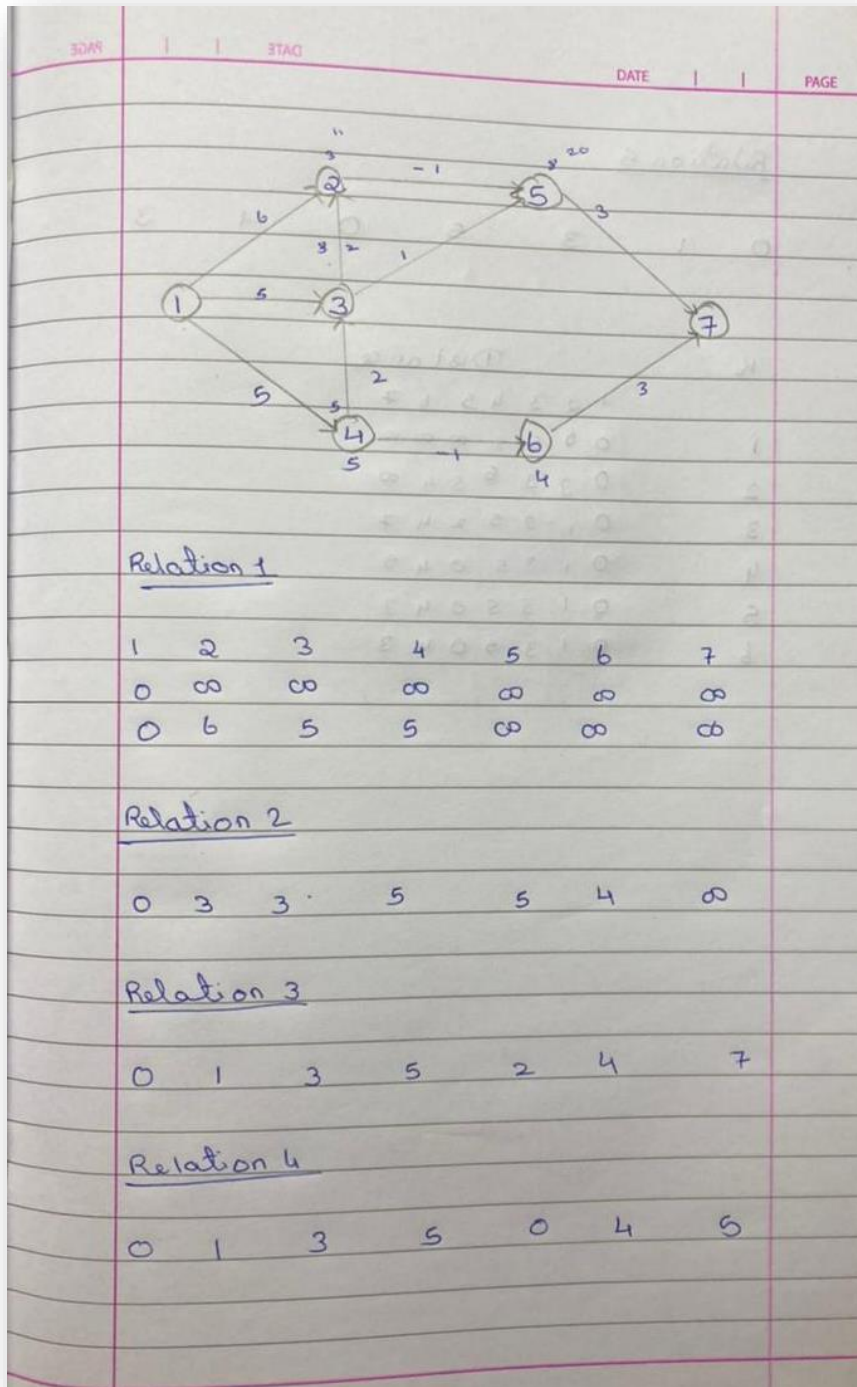 DATE PAGE
3 20
2 -1 5
6 3
2 1
1 5 3
7
5 2 3
5
4 -1 6
5 4
Relation 1
1 2 3 4 5 6 7
0 ∞ ∞ ∞ ∞ ∞ ∞
0 6 5 5 ∞ ∞ ∞
Relation 2
0 3 3 5 5 4 ∞
Relation 3
0 1 3 5 2 4 7
Relation 4
0 1 3 5 0 4 5